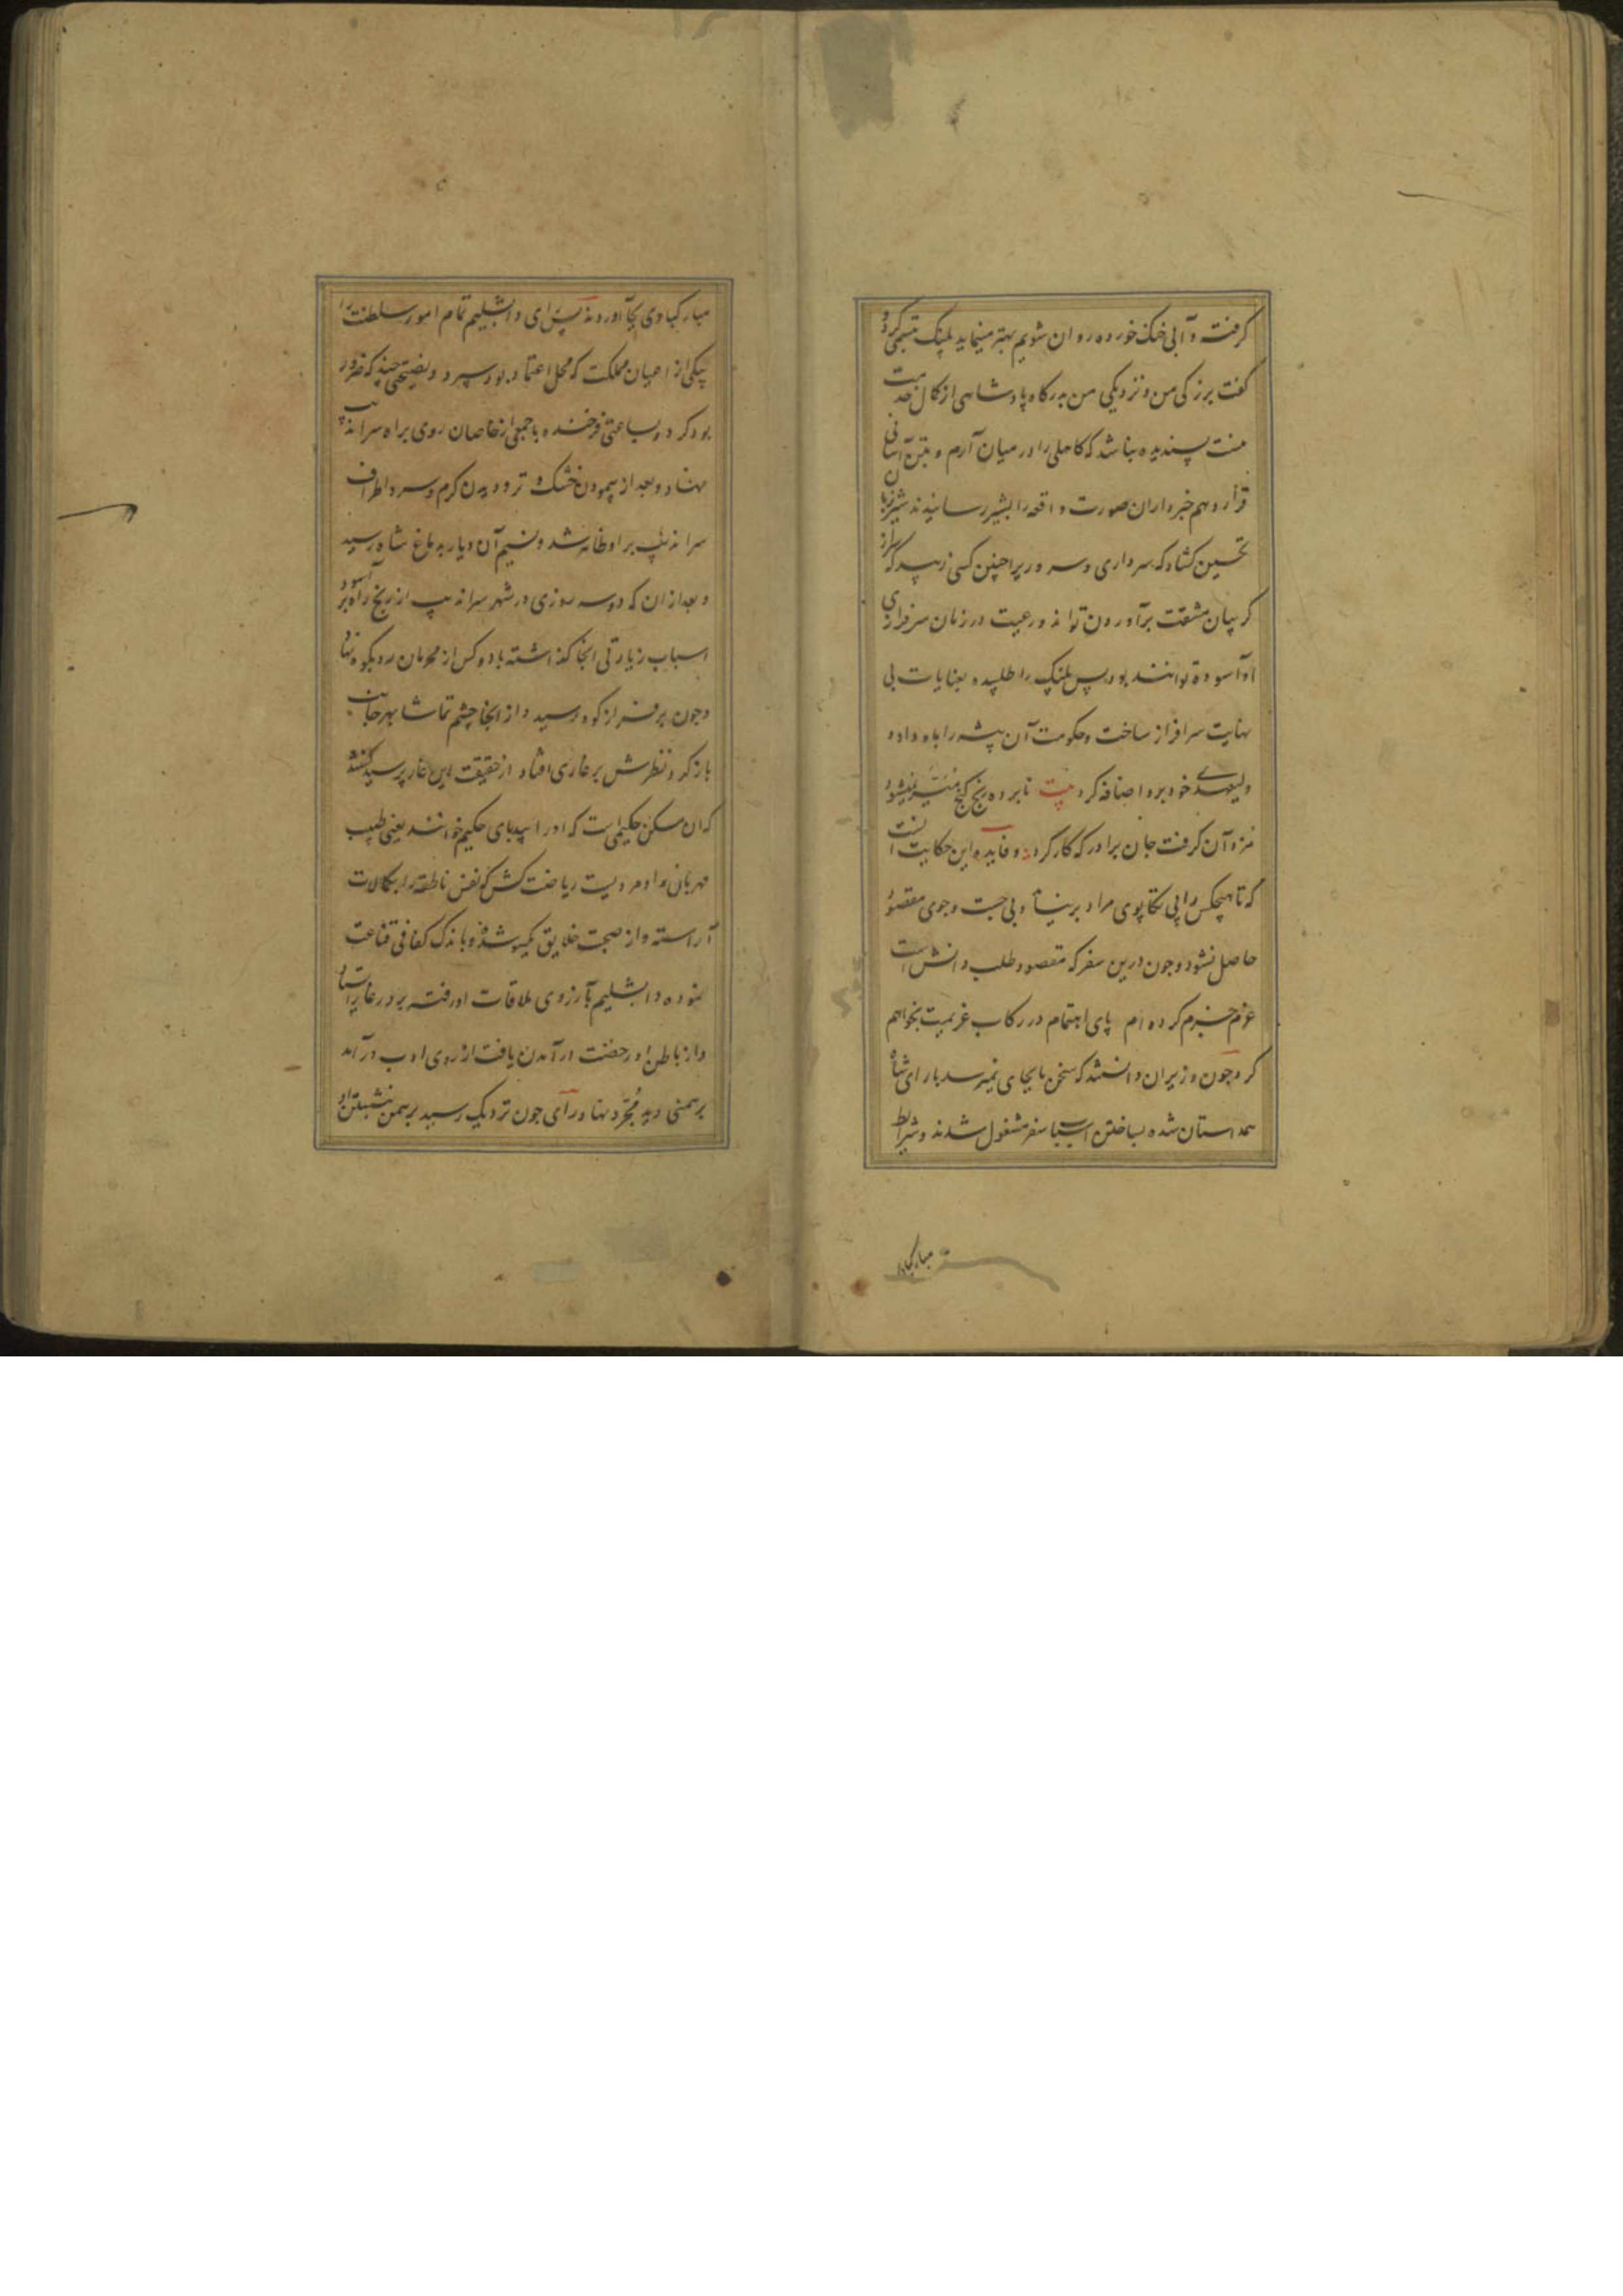 گرفته و آبی خنک خورده روان شویم بهتر مینماید پلنک تبسمی کرد و
کفت بزرکی من و نزدیکی من بدرکاه پادشاهی از کمال خدمت
منت پسندیده نباشد که کاهلی را در میان آرم و بتن آسانی
قرار دهم خبرداران صورت واقعه را بشیر رسانیدند شیر زبان
تحسین کشاد که سرداری و سروری را چنین کسی زیبد که سر از
کریبان مشقت برآوردن تواند و رعیت در زمان سرفرازی
او آسوده توانند بود پس پلنک را طلبیده بعنایات بی
نهایت سرافراز ساخت و حکومت آن بیشه را باو داد و
ولیعهدی خود برو اضافه کرد بیت نابرده رنج کنج میسر نمیشود
مزد آن کرفت جان برادر که کار کرد و فایده این حکایت آنست
که تا هیچکس را بی تکاپوی مراد برنیاید و بی جست و جوی مقصود
حاصل نشود و چون درین سفر که مقصود طلب دانش است
عزم جزم کرده ام پای اهتمام در رکاب عزیمت بخواهم
کرد چون وزیران دانستند که سخن ما بجای نمیرسد با رای شاه
همداستان شده بساختن اسباب سفر مشغول شدند و شرایط
مبارکبادی
مبارکبادی بجا آوردند پس رای دابشلیم تمام امور سلطنت را
بیکی از اعیان مملکت که محل اعتماد بود سپرد و نصیحتی چند که ضرور
بود کرد و بساعتی فرخنده با جمعی از خاصان روی براه سراندیب
نهاد و بعد از پیمودن خشک و تر و دیدن کرم و سرد اطراف
سراندیب بر او ظاهر شد و نسیم آن دیار بدماغ شاه رسید
و بعد از ان که دو سه روزی در شهر سراندیب از رنج راه آسود
اسباب زیارتی آنجا کذاشته با دو کس از محرمان رو بکوه نهاد
و چون بر فراز کوه رسید و از آنجا چشم تماشا بهر جانب
باز کرد و نظرش بر غاری افتاد از حقیقت این غار پرسید کفتند
که آن مسکن حکیمی است که او را بیدپای حکیم خوانند یعنی طبیب
مهربان و او مردیست ریاضت کش که نفس ناطقه را بکمالات
آراسته و از صحبت خلایق یکسو شده و باندک کفافی قناعت
نموده دابشلیم بآرزوی ملاقات او رفته بر در غار ایستاد
و از باطن او رخصت درآمدن یافت از روی ادب درآمد
برهمنی دید مجرد نهاد رای چون نزدیک رسید برهمن